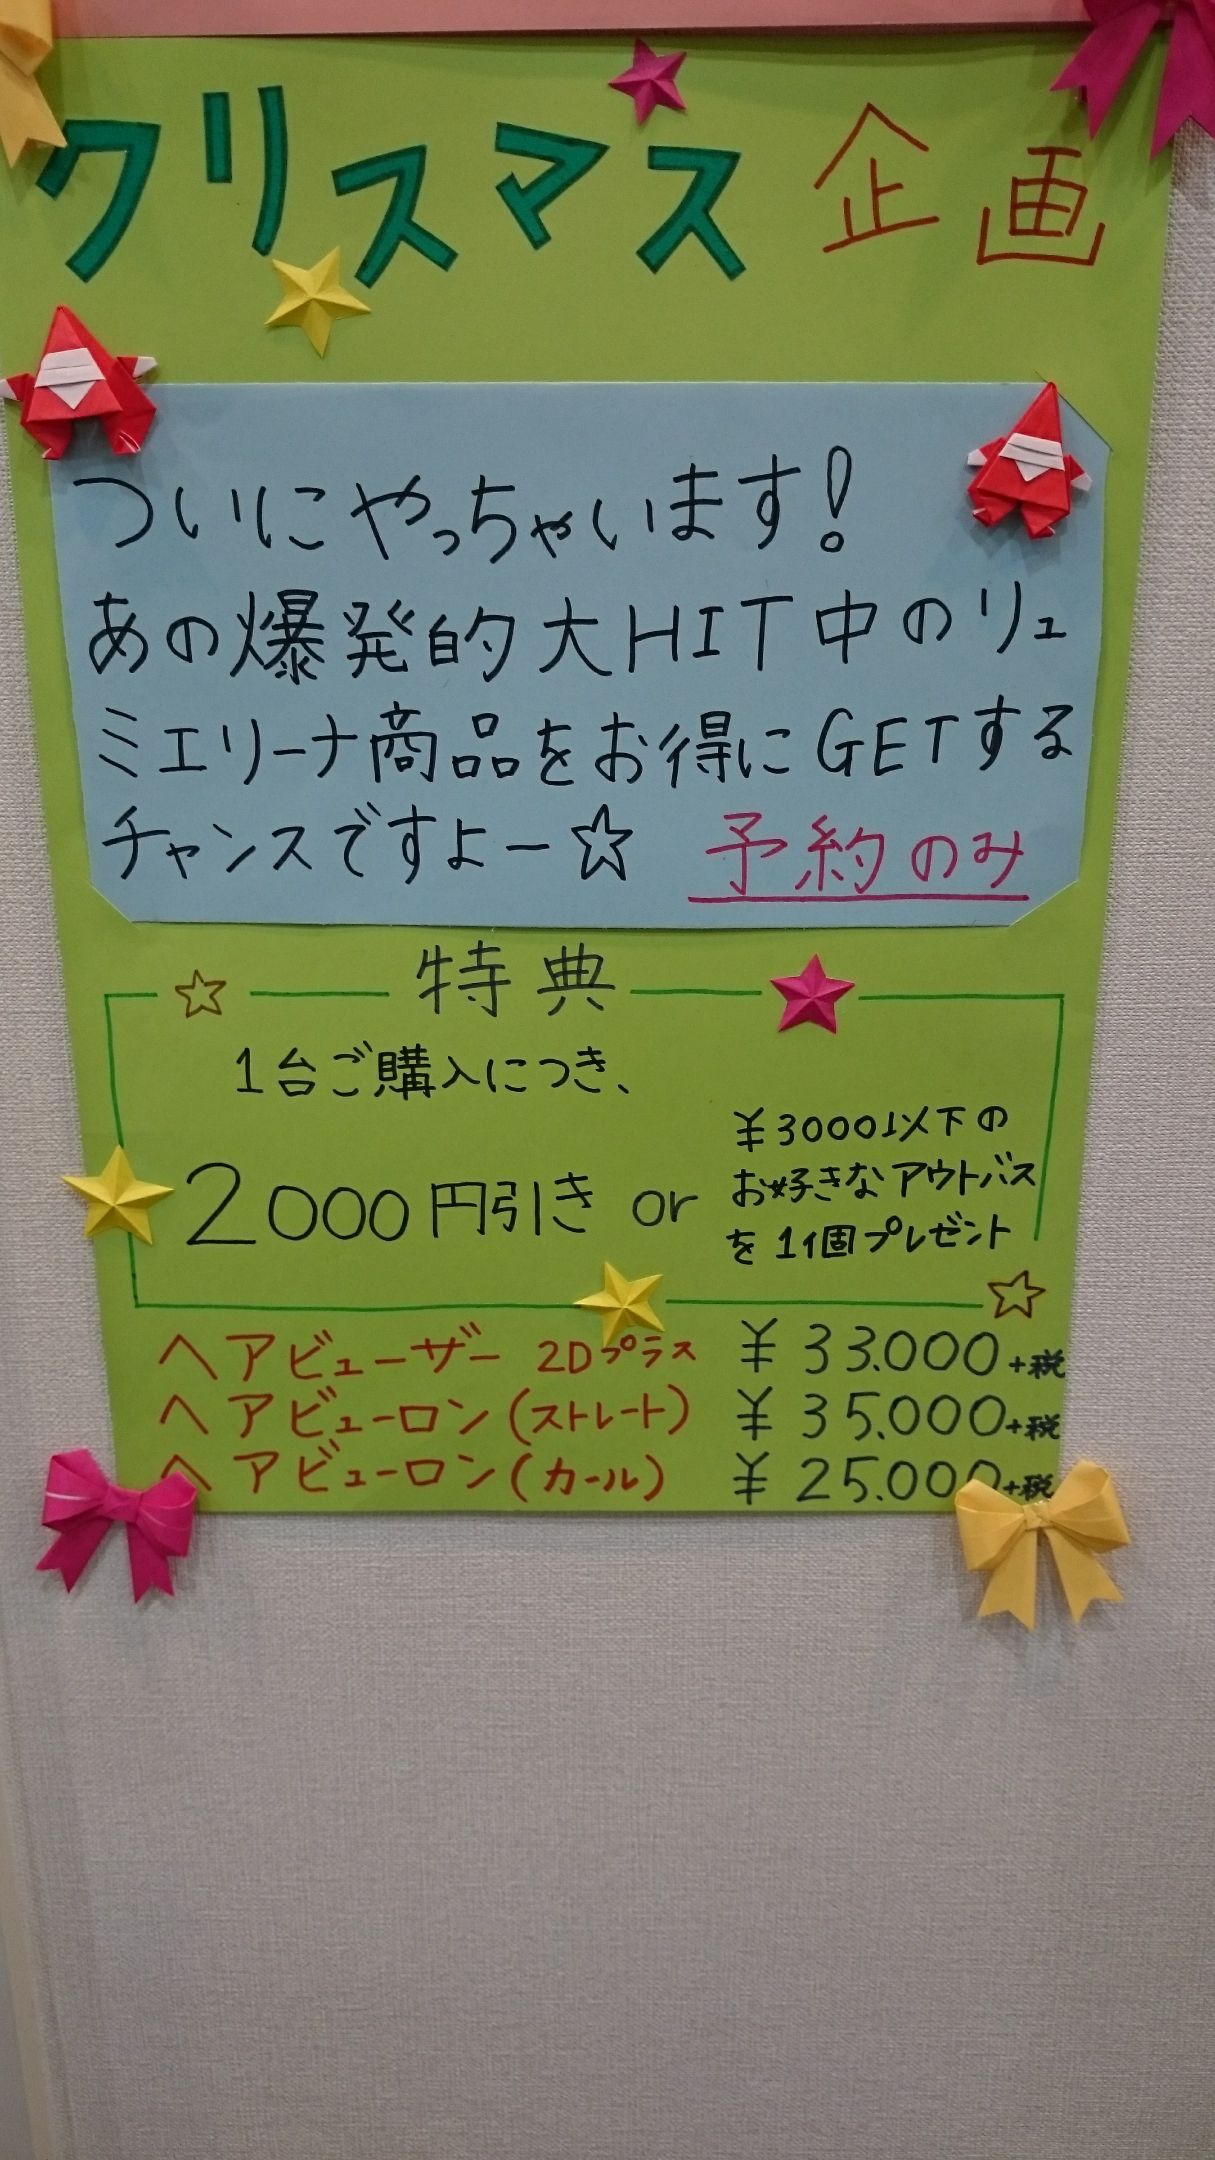 クリスマス企画
ついにやっちゃいます!
あの爆発的大HIT中のリュ
ミエリーナ商品をお得にGETする
チャンスですよー☆ 予約のみ
特典
1台ご購入につき、
2000円引き or
¥3000以下の
お好きなアウトバス
を1個プレゼント
ヘアビューザー 2Dプラス ¥33.000+税
ヘアビューロン(ストレート) ¥35.000+税
ヘアビューロン(カール) ¥25.000+税